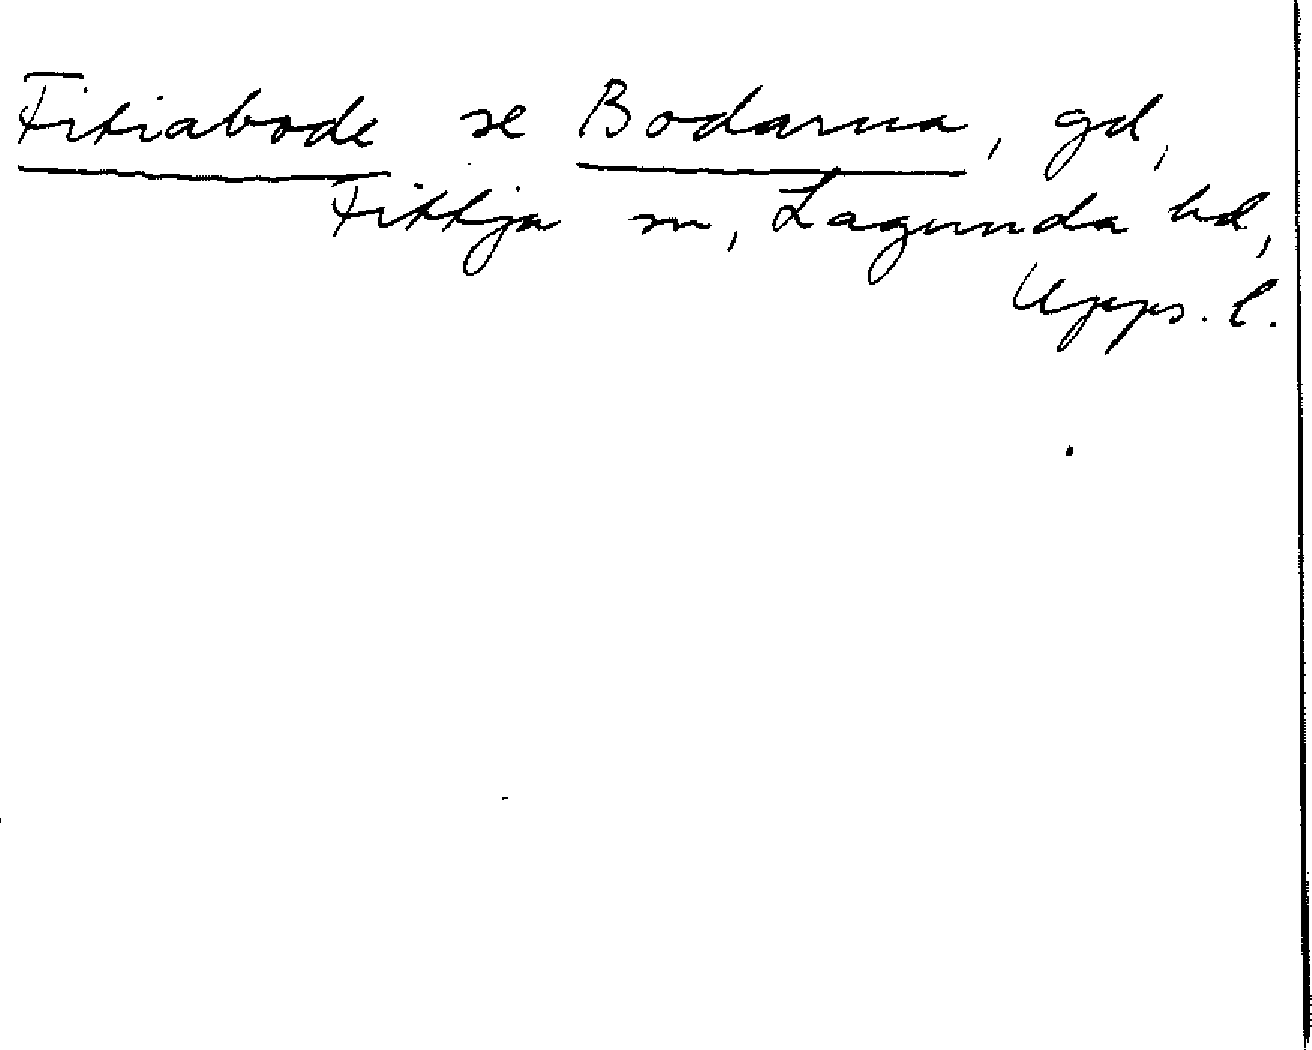 Fitiabode se Bodarna, gd,
Fittja sn, Lagunda hd,
Upps. l.